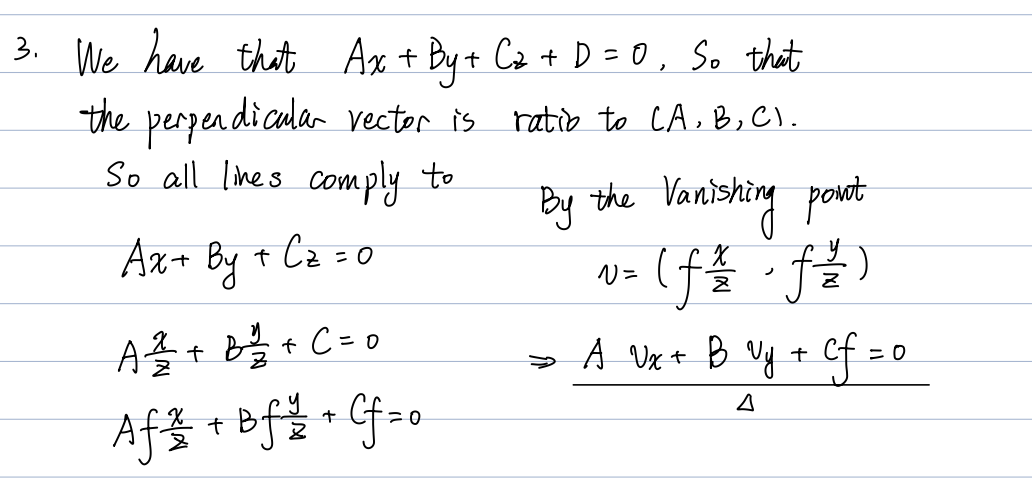 3. We have that Ax + By + Cz + D = 0, So that
the perpendicular vector is ratio to (A, B, C).
So all lines comply to
Ax + By + Cz = 0
A x/z + B y/z + C = 0
Af x/z + Bf y/z + Cf = 0
By the Vanishing point
v = (f x/z, f y/z)
⇒ A vx + B vy + Cf = 0
△